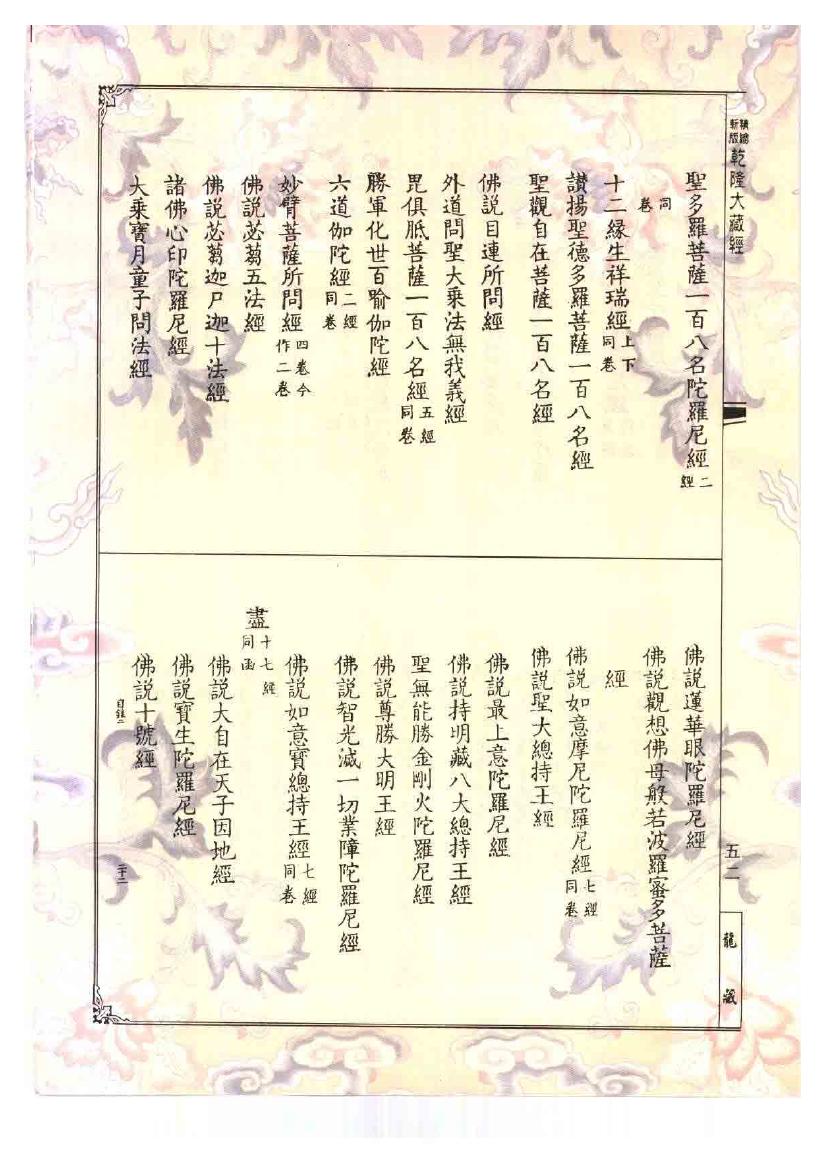 精縮新版 乾隆大藏經
聖多羅菩薩一百八名陀羅尼經二經
同卷
十二緣生祥瑞經上下同卷
讚揚聖德多羅菩薩一百八名經
聖觀自在菩薩一百八名經
佛説目連所問經
外道問聖大乘法無我義經
毘俱胝菩薩一百八名經五經同卷
勝軍化世百喻伽陀經
六道伽陀經二經同卷
妙臂菩薩所問經四卷今作二卷
佛説苾蒭五法經
佛説苾蒭迦尸迦十法經
諸佛心印陀羅尼經
大乘寶月童子問法經
佛説蓮華眼陀羅尼經
佛説觀想佛母般若波羅蜜多菩薩
經
佛説如意摩尼陀羅尼經七經同卷
佛説聖大總持王經
佛説最上意陀羅尼經
佛説持明藏八大總持王經
聖無能勝金剛火陀羅尼經
佛説尊勝大明王經
佛説智光滅一切業障陀羅尼經
佛説如意寶總持王經七經同卷
盡十七經同函
佛説大自在天子因地經
佛説寶生陀羅尼經
佛説十號經
目錄二
二十二
五二
龍藏